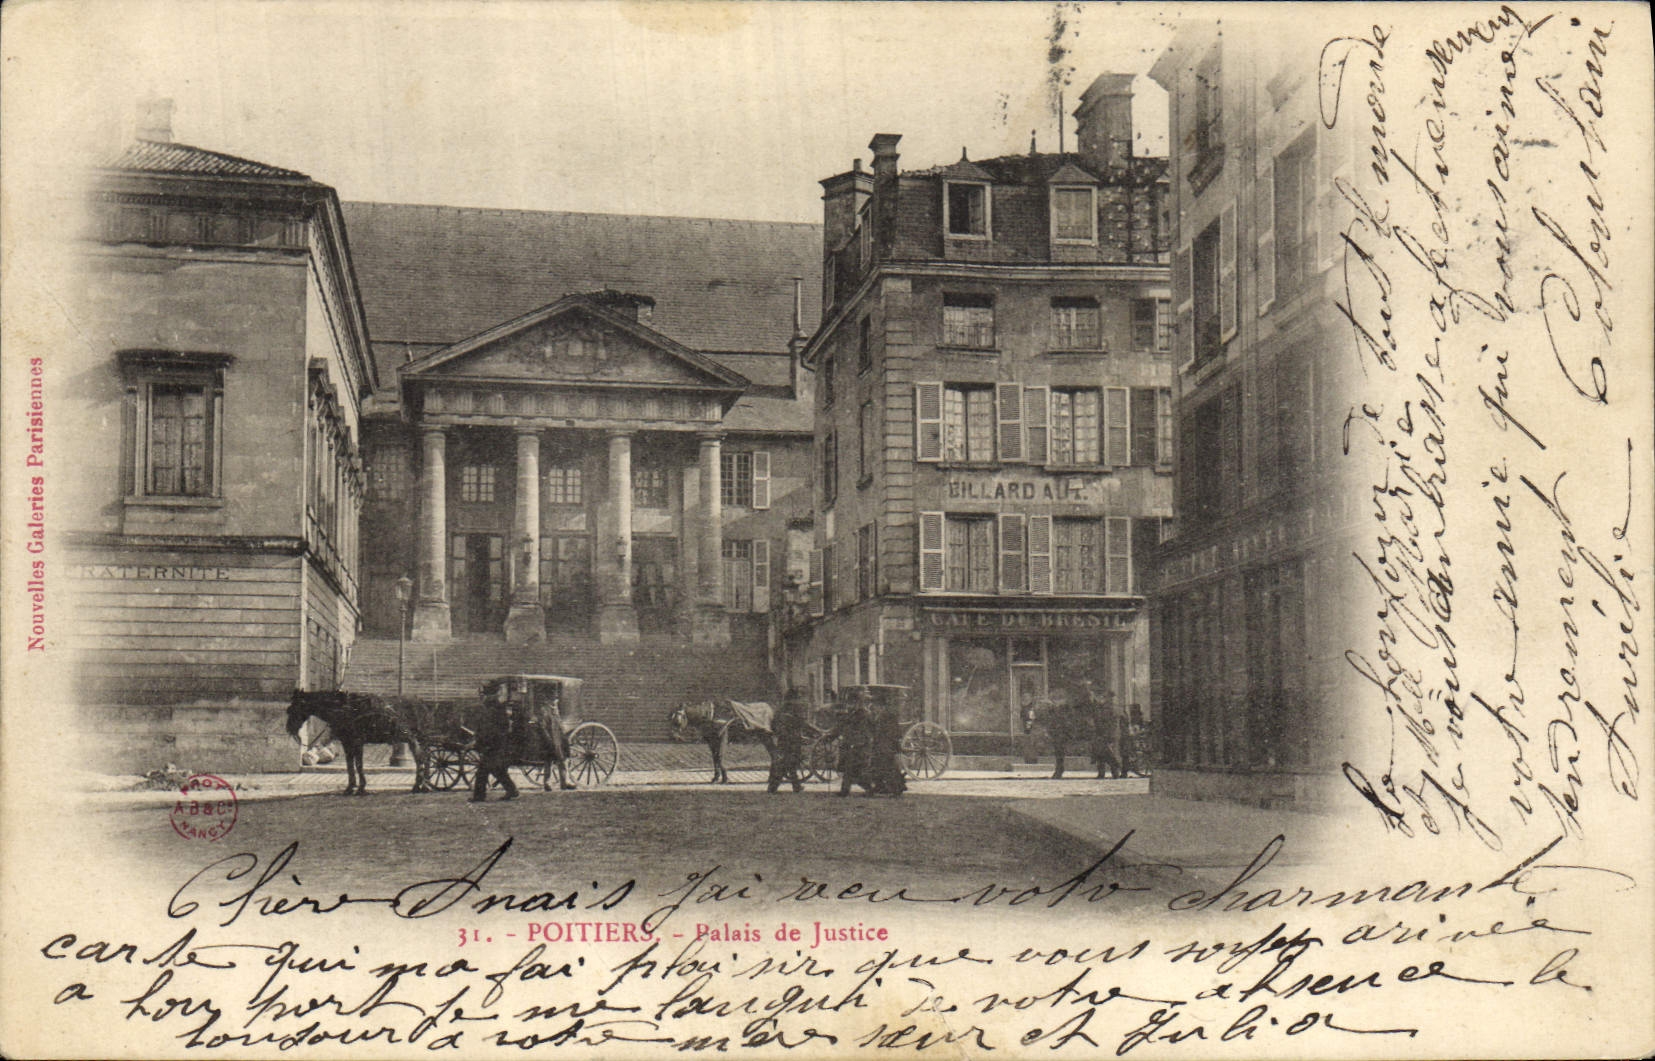 Nouvelles Galeries Parisiennes
FRATERNITE
BILLARD AU 1.
CAFE DU BRESIL
PROT
A B & Cie
NANCY
31. - POITIERS. - Palais de Justice
Chère Anais Jai reçu votre charmante
carte qui ma fai plaisir que vous soyez arivée
a bon port je me langui de votre absence le
bonjour a votre mère sœur et Julia
Le bonjour de tout le monde
et Melle Marie
Je vous embrasse afectueusement
votre amie qui vous aime
tendrement
Aurélie Coloumbani